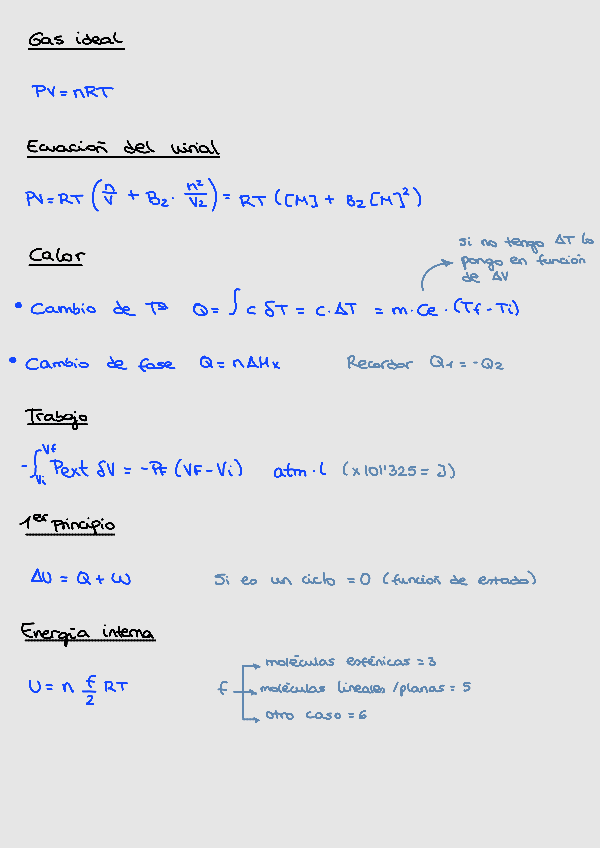 Gas ideal
PV = nRT
Ecuación del virial
PV = RT (n/V + B2 · n²/V2) = RT ([M] + B2 [M]²)
Calor
si no tengo ΔT lo
pongo en función
de ΔV
• Cambio de Tª Q = ∫ c δT = c · ΔT = m · Ce · (Tf - Ti)
• Cambio de fase Q = nΔHx Recordar Q1 = -Q2
Trabajo
-∫Vi^Vf Pext δV = -Pf (VF - Vi) atm · l (x101'325 = J)
1er Principio
ΔU = Q + W Si es un ciclo = 0 (función de estado)
Energía interna
moléculas esféricas = 3
U = n f/2 RT f moléculas lineales / planas = 5
otro caso = 6